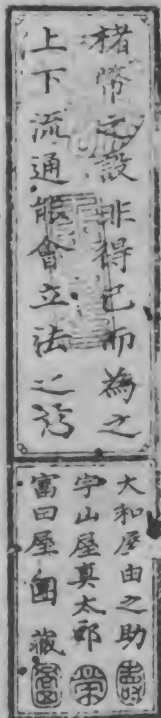 楮幣之設非得已而為之
上下流通能會立法之
大和屋由之助
宇山屋真太郎
富田屋圍藏